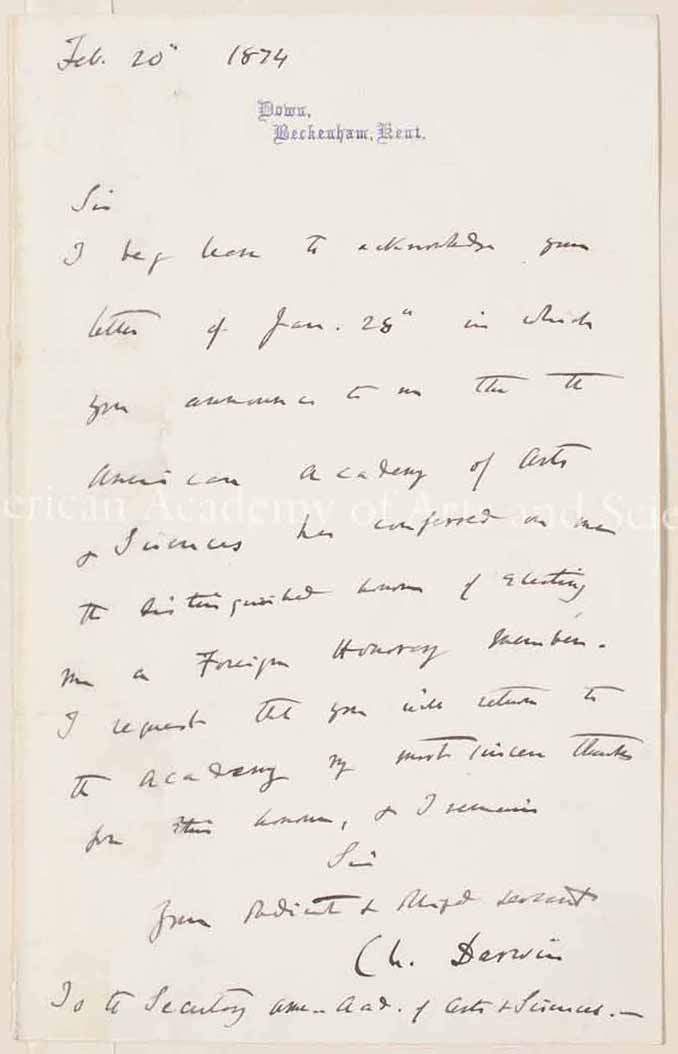 Feb. 20th 1874
Down,
Beckenham, Kent.
Sir
I beg leave to acknowledge your
letter of Jan. 28th in which
you announce to me that the
American Academy of Arts
American Academy of Arts and Scie
& Sciences has conferred on me
the distinguished honour of electing
me a Foreign Honorary Member.
I request that you will return to
the Academy my most sincere thanks
for this honour, & I remain
Sir
Your obedient & obliged servant
Ch. Darwin
To the Secretary Amer. Acad. of Arts & Sciences.—